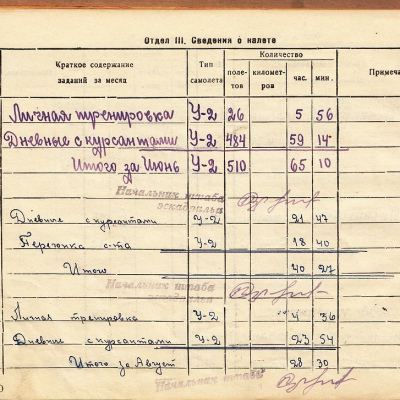 Отдел III. Сведения о налете
Краткое содержание заданий за месяц | Тип самолета | Количество | Примеча
поле-тов | километ-ров | час. | мин.
Личная тренировка У-2 26 5 56
Дневные с курсантами У-2 484 59 14
Итого за Июнь У-2 510 65 10
Начальник штаба
эскадрильи
Дневные с курсантами У-2 21 47
Перегонка с-та У-2 18 40
Итого 40 27
Начальник штаба
эскадрильи
Личная тренировка У-2 4 36
Дневные с курсантами У-2 23 54
Итого за Август 28 30
Начальник штаба